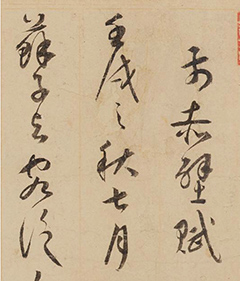 前赤壁賦
壬戌之秋七月
蘇子與客泛